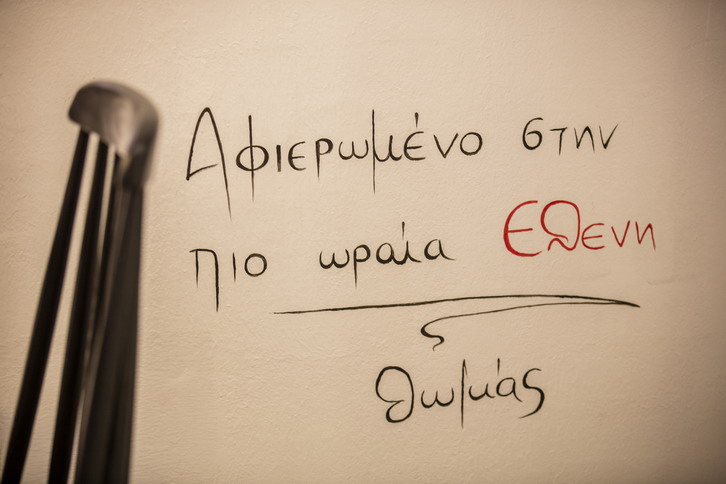 Αφιερωμένο στην
πιο ωραία Ελένη
Θωμάς